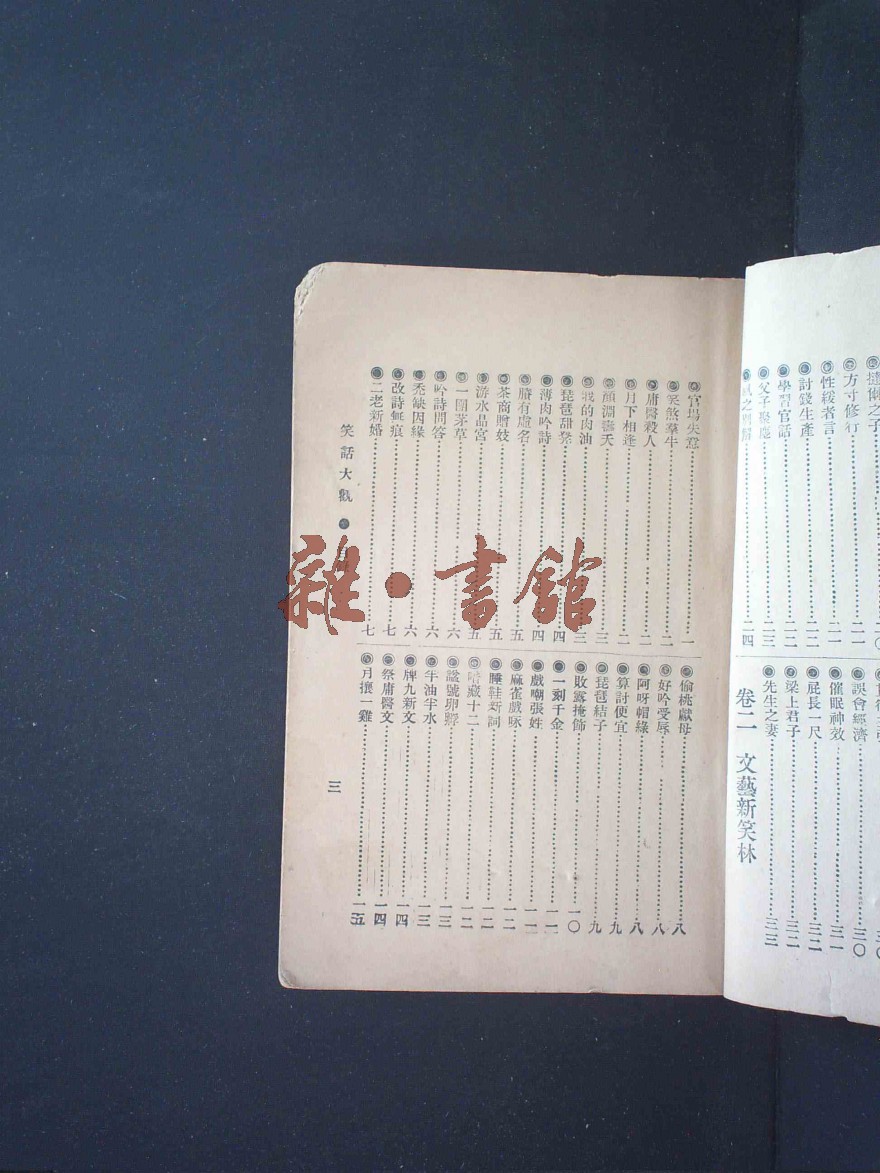 方寸修行……二一
性緩者言……二一
學習官話……二二
討錢生產……二二
父子聚麀……二三
誤會經濟……三〇
催眠神效……三一
屁長一尺……三二
梁上君子……三二
先生之妻……三三
卷二 文藝新笑林
官場失意……一
笑煞羣牛……一
庸醫殺人……二
月下相逢……二
我的肉油……三
琵琶甜凳……四
薄肉吟詩……四
賸有虛名……五
茶商贈妓……五
游水晶宮……五
一團茅草……六
吟詩問答……六
禿缺因緣……六
改詩無痕……七
二老新婚……七
偷桃獻母……八
好吟受辱……八
阿呀帽綠……八
算討便宜……九
琵琶結子……九
敗露掩飾……一〇
一刻千金……一一
戲嘲張姓……一一
麻雀戲咏……一二
睡鞋新詞……一二
暗藏十二……一二
諡號卵孵……一三
牛油半水……一三
牌九新文……一四
祭庸醫文……一四
月攘一雞……一五
笑話大觀
三
雜·書館